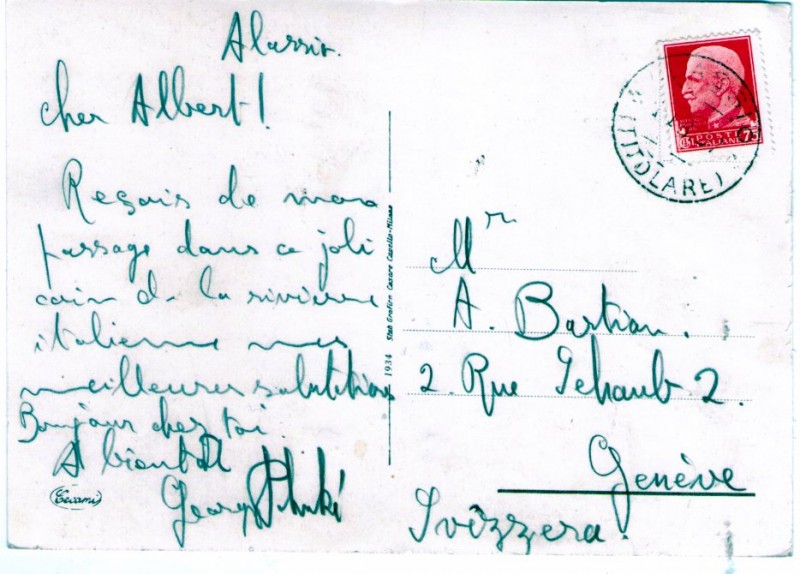 Alassio.
cher Albert!
Reçois de mon
passage dans ce joli
coin de la riviera
italienne mes
meilleures salutations
Bonjour chez toi.
A bientôt
Georg
Cecami
1934 Stab Grafico Cesare Capello-Milano
POSTE
ITALIANE 75
(TITOLARE)
Mr
A. Bastian.
2. Rue Schaub 2.
Genève
Svizzera.